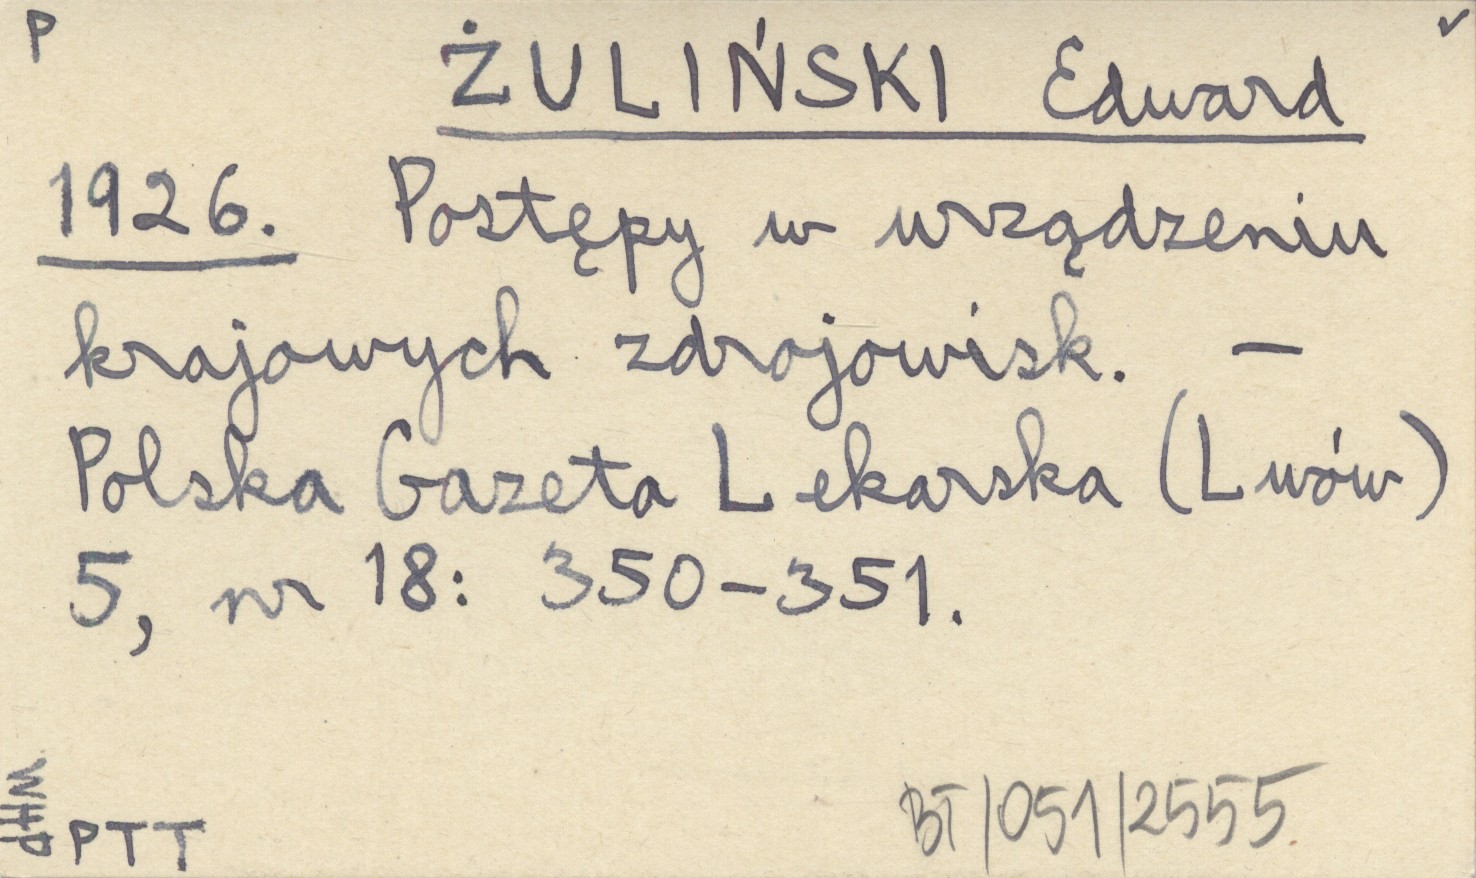 P
ŻULIŃSKI Edward ✓
1926. Postępy w urządzeniu
krajowych zdrojowisk. –
Polska Gazeta Lekarska (Lwów)
5, nr 18: 350–351.
WHP
PTT
BT/051/2555